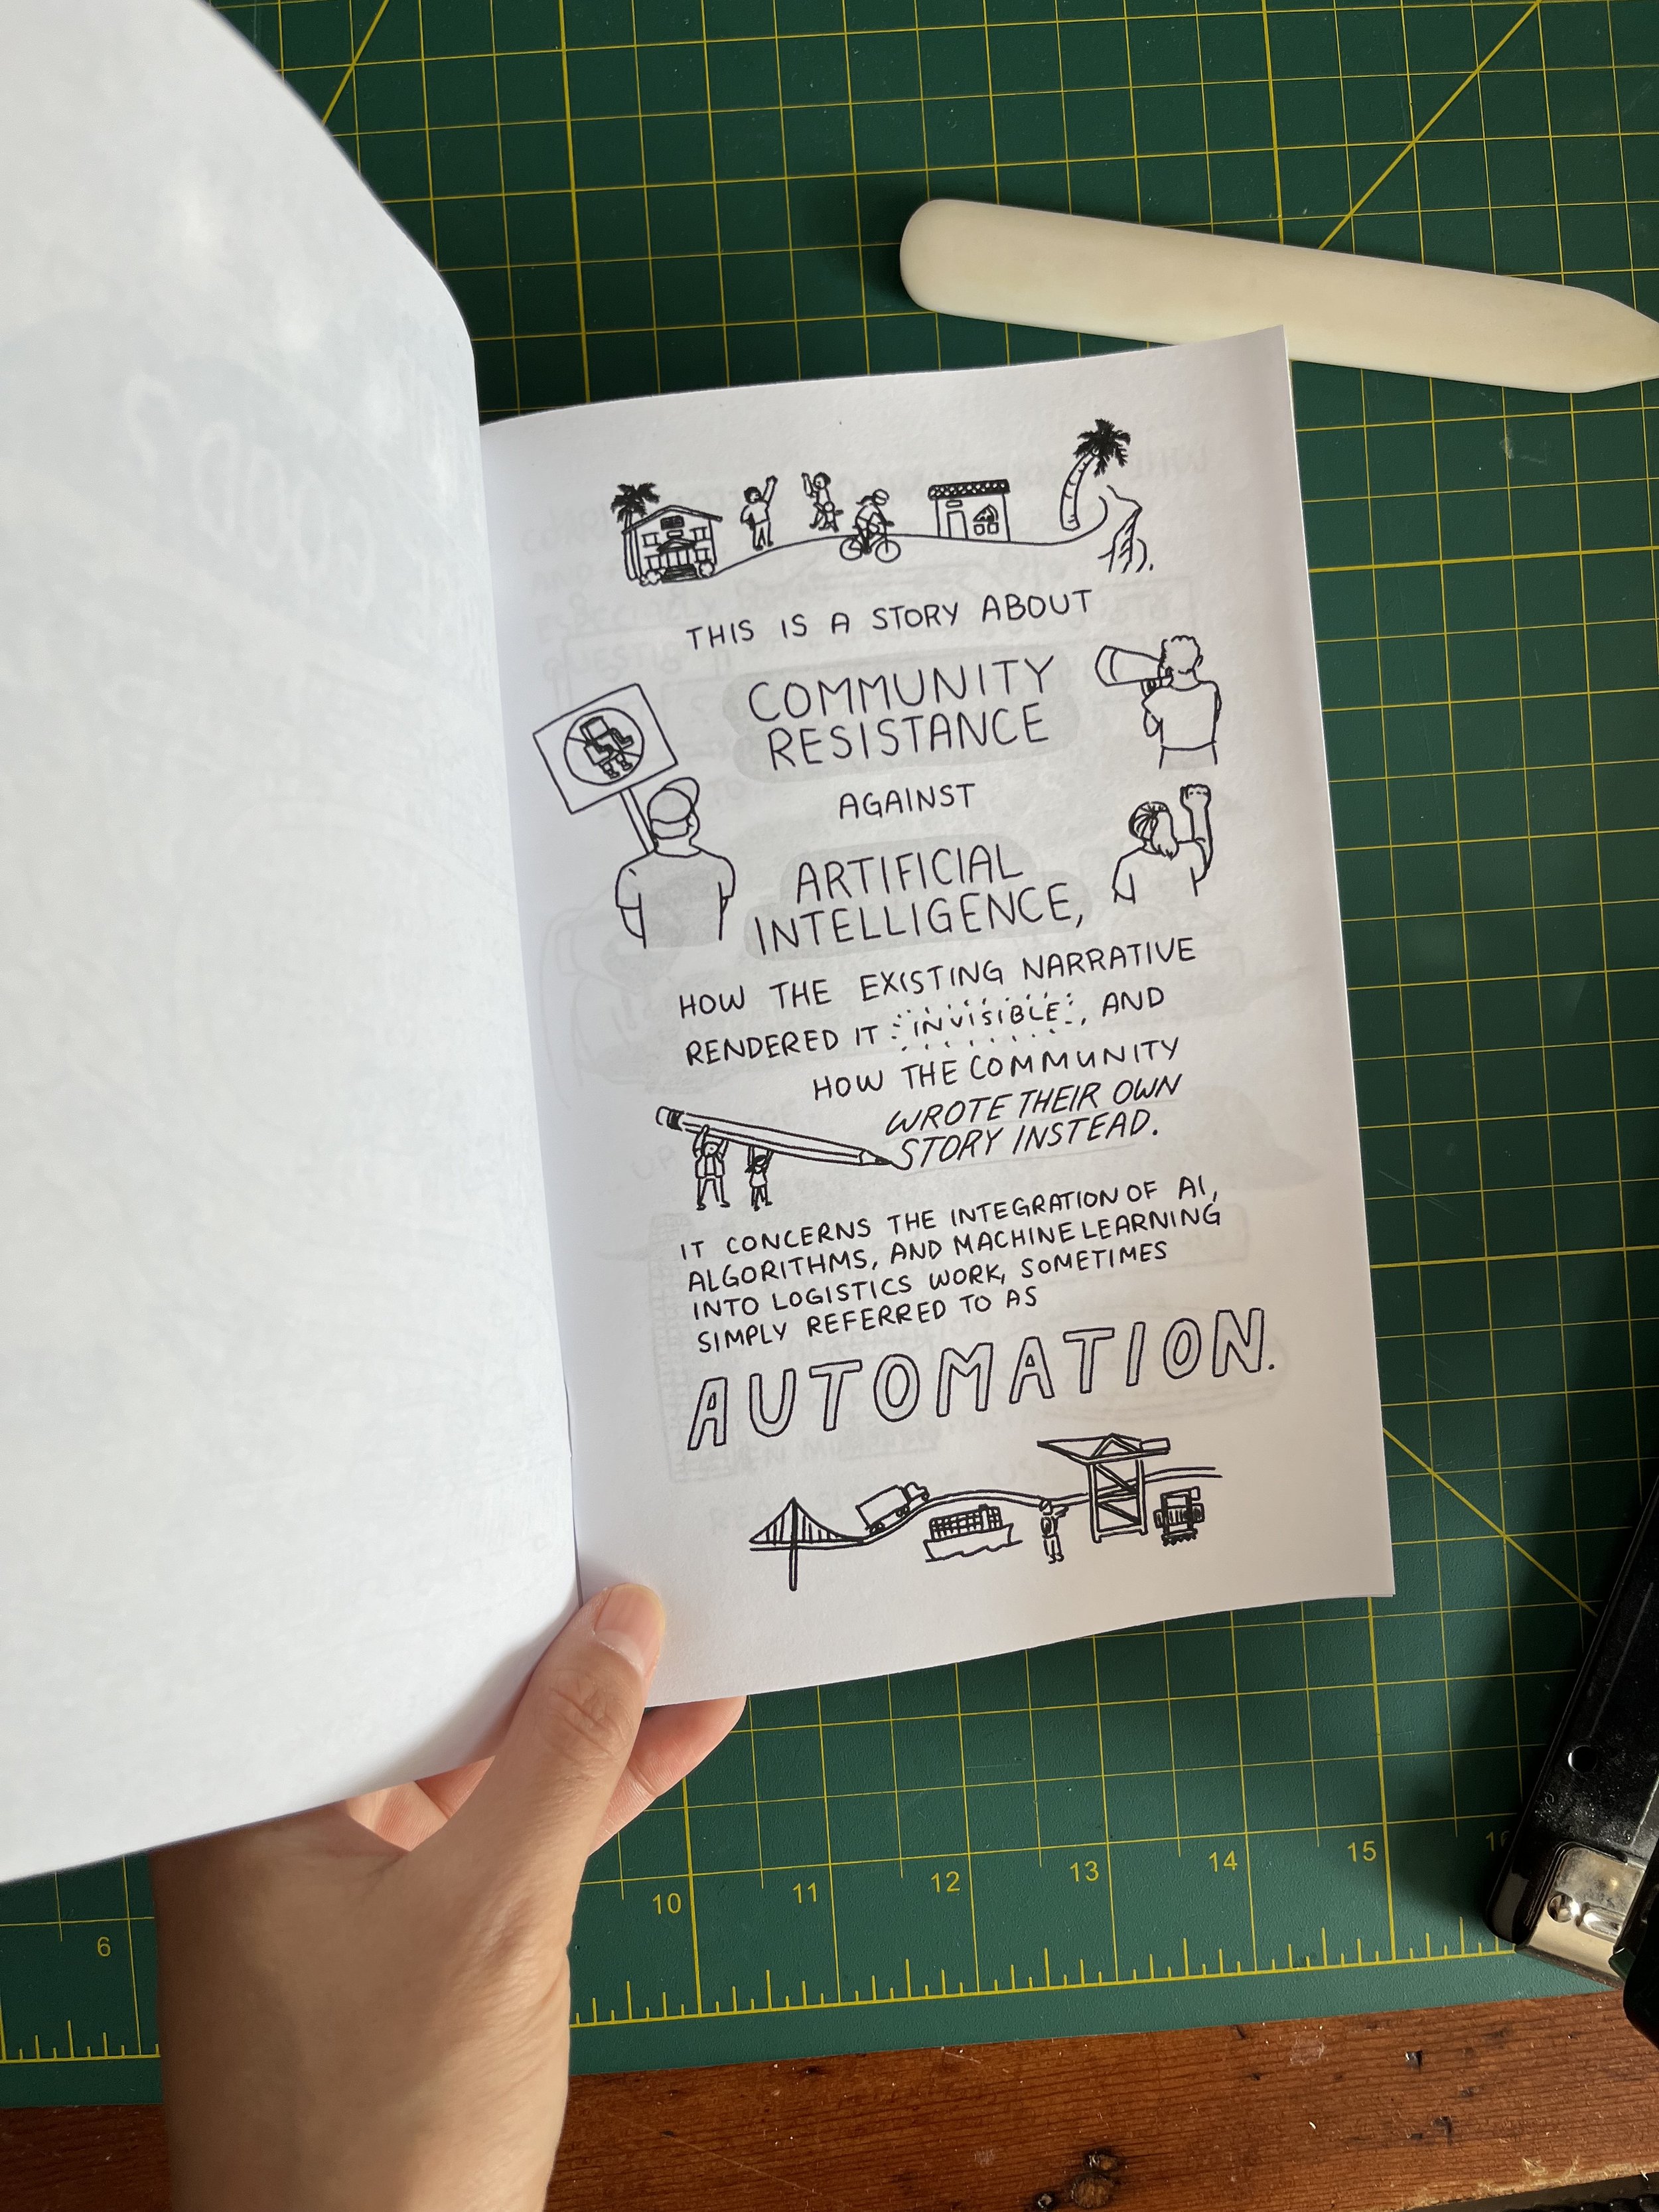 THIS IS A STORY ABOUT
COMMUNITY
RESISTANCE
AGAINST
ARTIFICIAL
INTELLIGENCE,
HOW THE EXISTING NARRATIVE
RENDERED IT INVISIBLE, AND
HOW THE COMMUNITY
WROTE THEIR OWN
STORY INSTEAD.
IT CONCERNS THE INTEGRATION OF AI,
ALGORITHMS, AND MACHINE LEARNING
INTO LOGISTICS WORK, SOMETIMES
SIMPLY REFERRED TO AS
AUTOMATION.
6 10 11 12 13 14 15